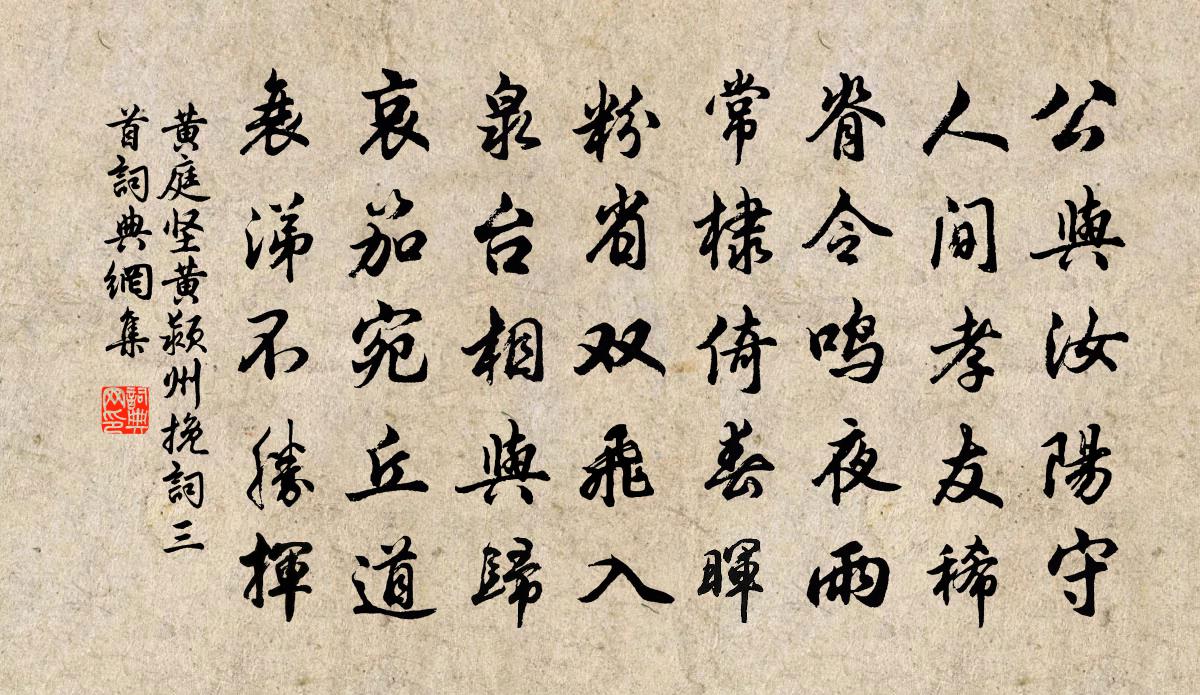 公與汝陽守
人间孝友稀
脊令鸣夜雨
常棣倚春暉
粉省双飛入
泉台相與歸
哀笳宛丘道
衰涕不勝揮
黄庭坚黄颍州挽詞三
首詞典網集
詞典
网印